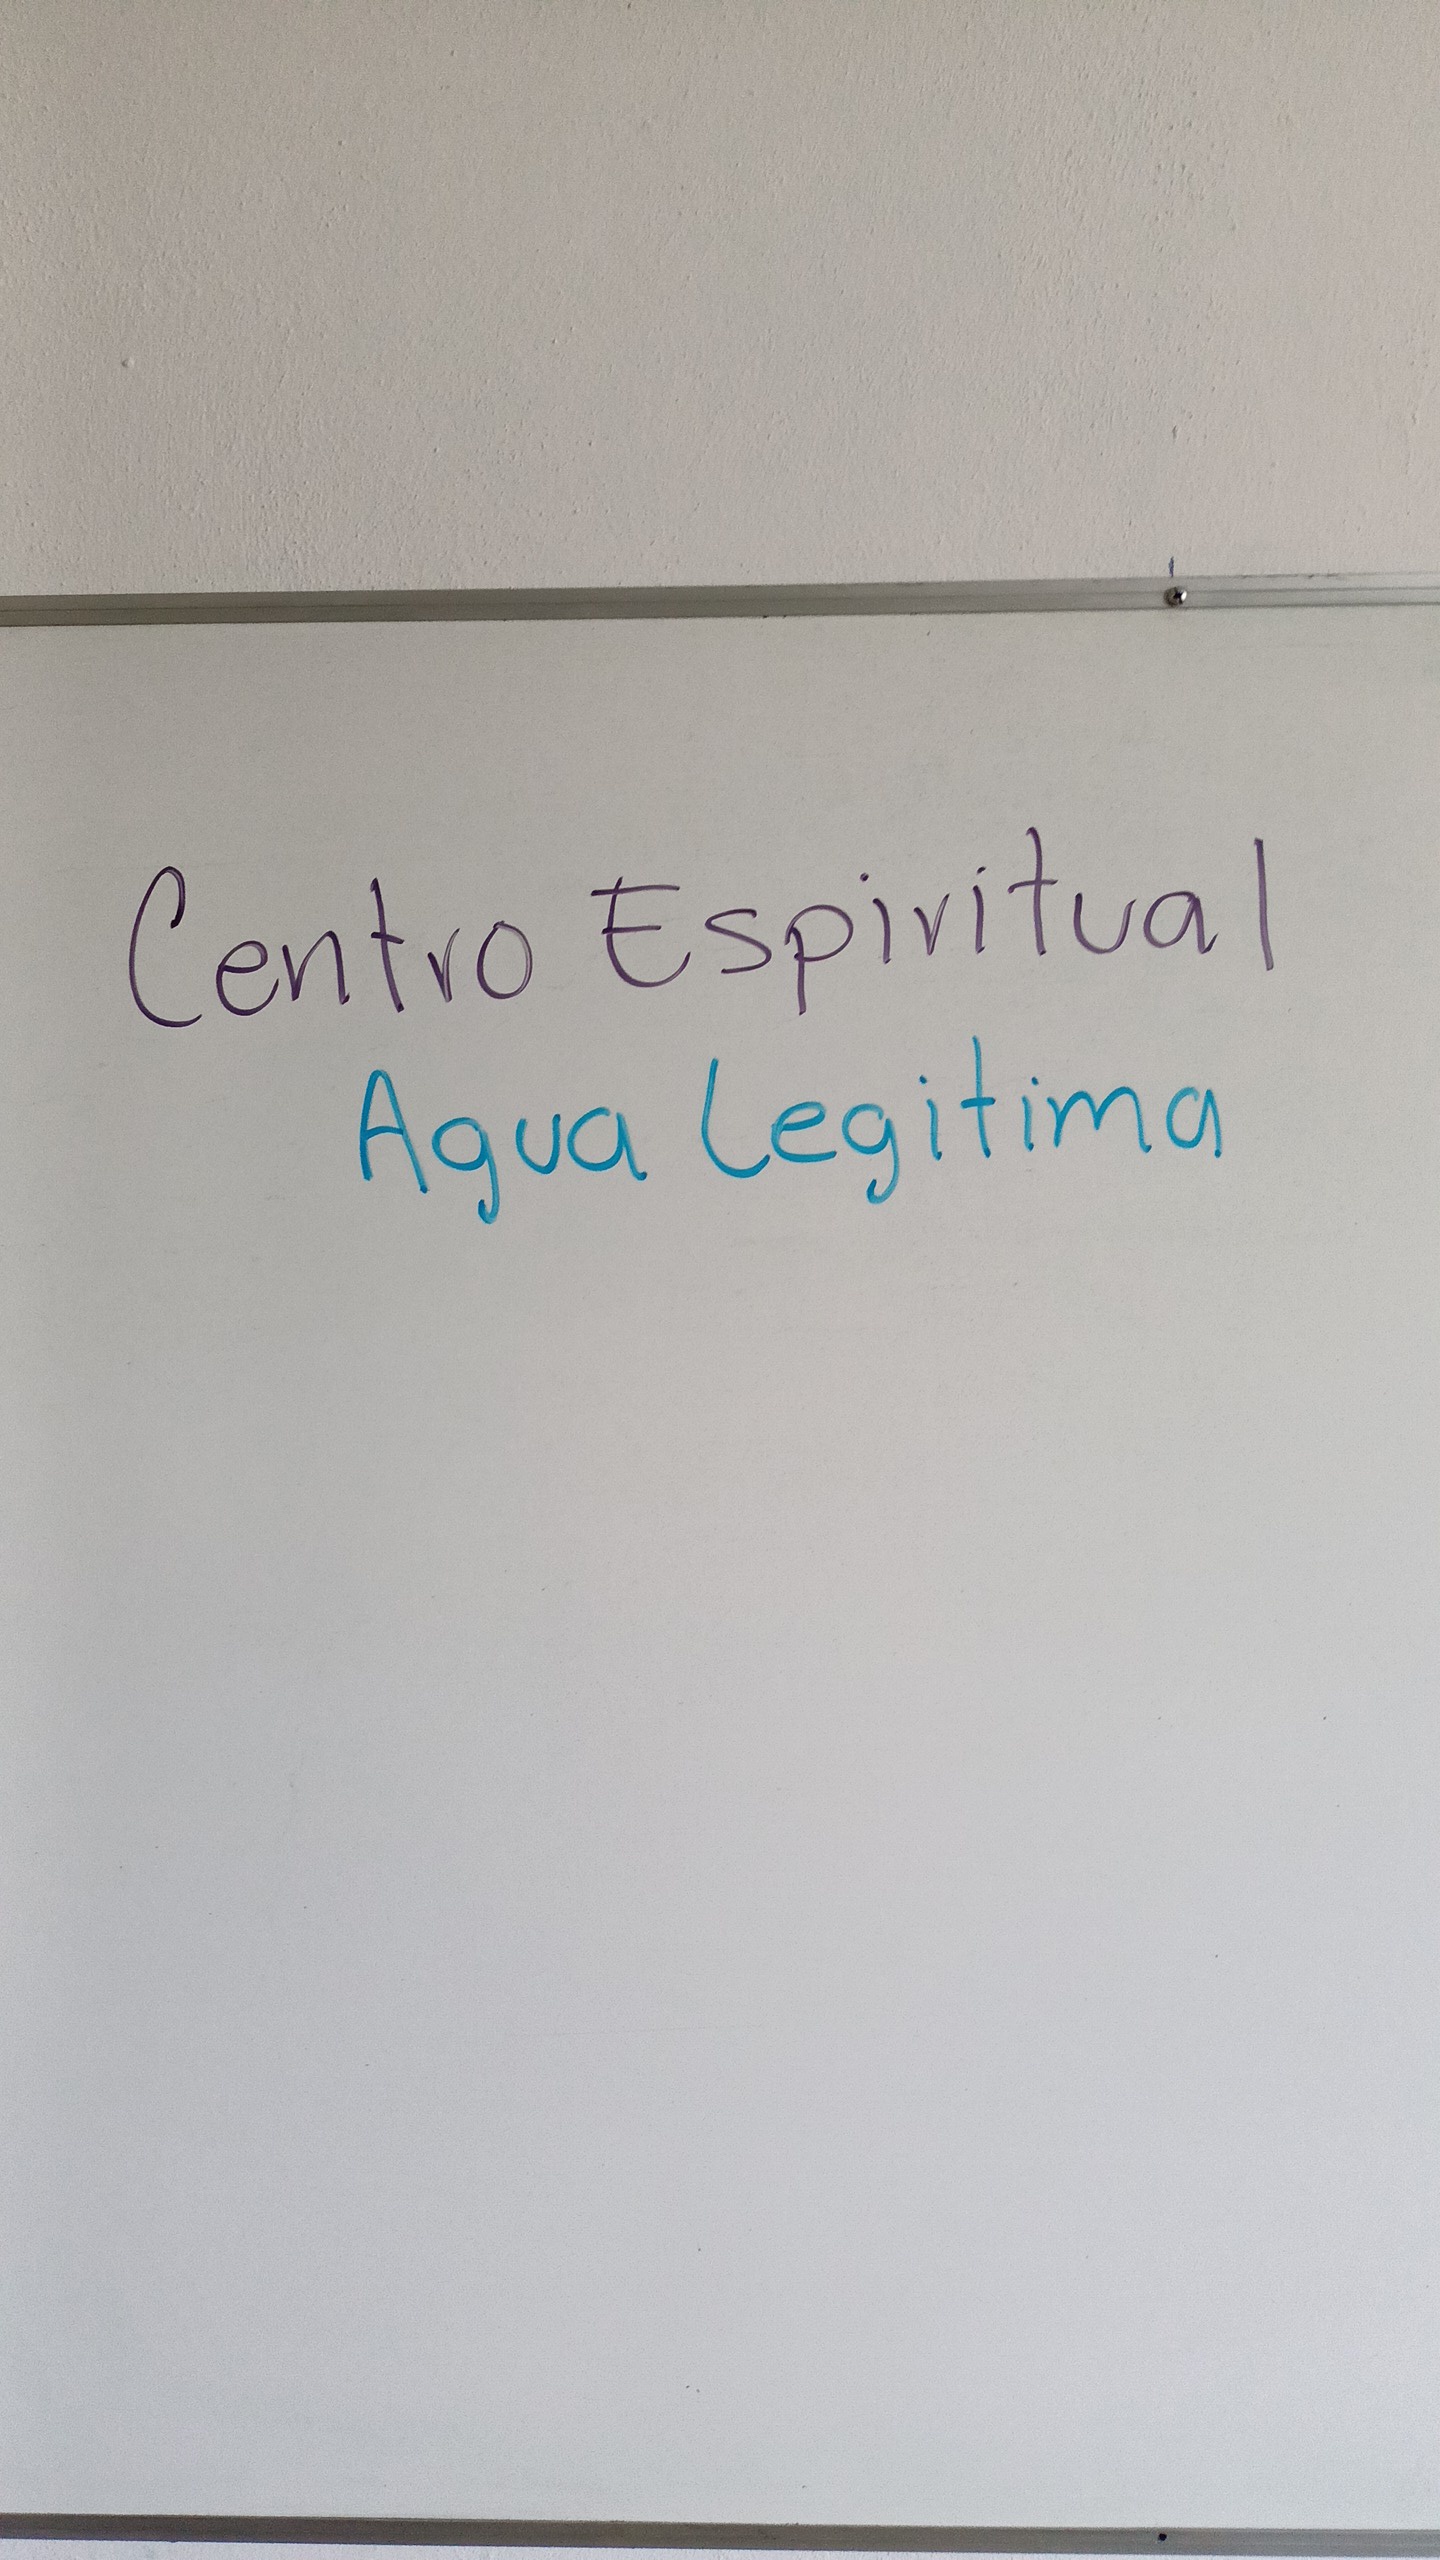 Centro Espiritual
Agua Legitima